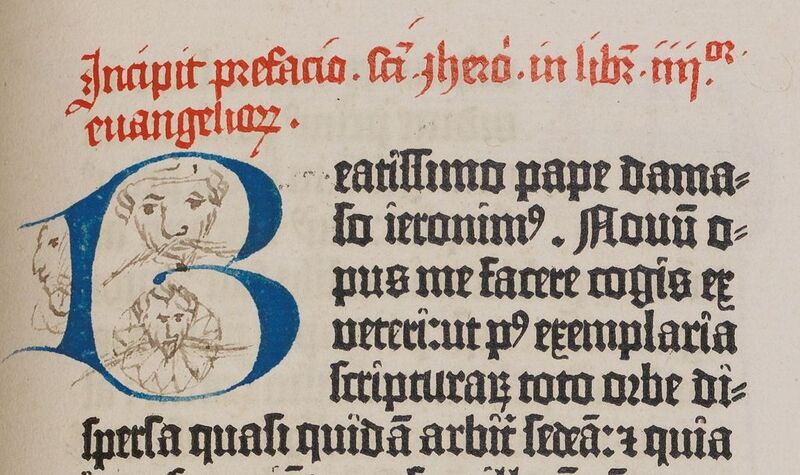 Incipit prefacio . sc̄i ihero̅ . in libr̄ . iiij.or
euangeliorꝝ .
Beatissimo pape dama⸗
so ieronimꝰ . Nouū o⸗
pus me facere cogis ex
veteri: ut pꝰ exemplaria
scripturaꝝ toto orbe di⸗
spersa quasi quidā arbit̄ sedeā: ⁊ quia